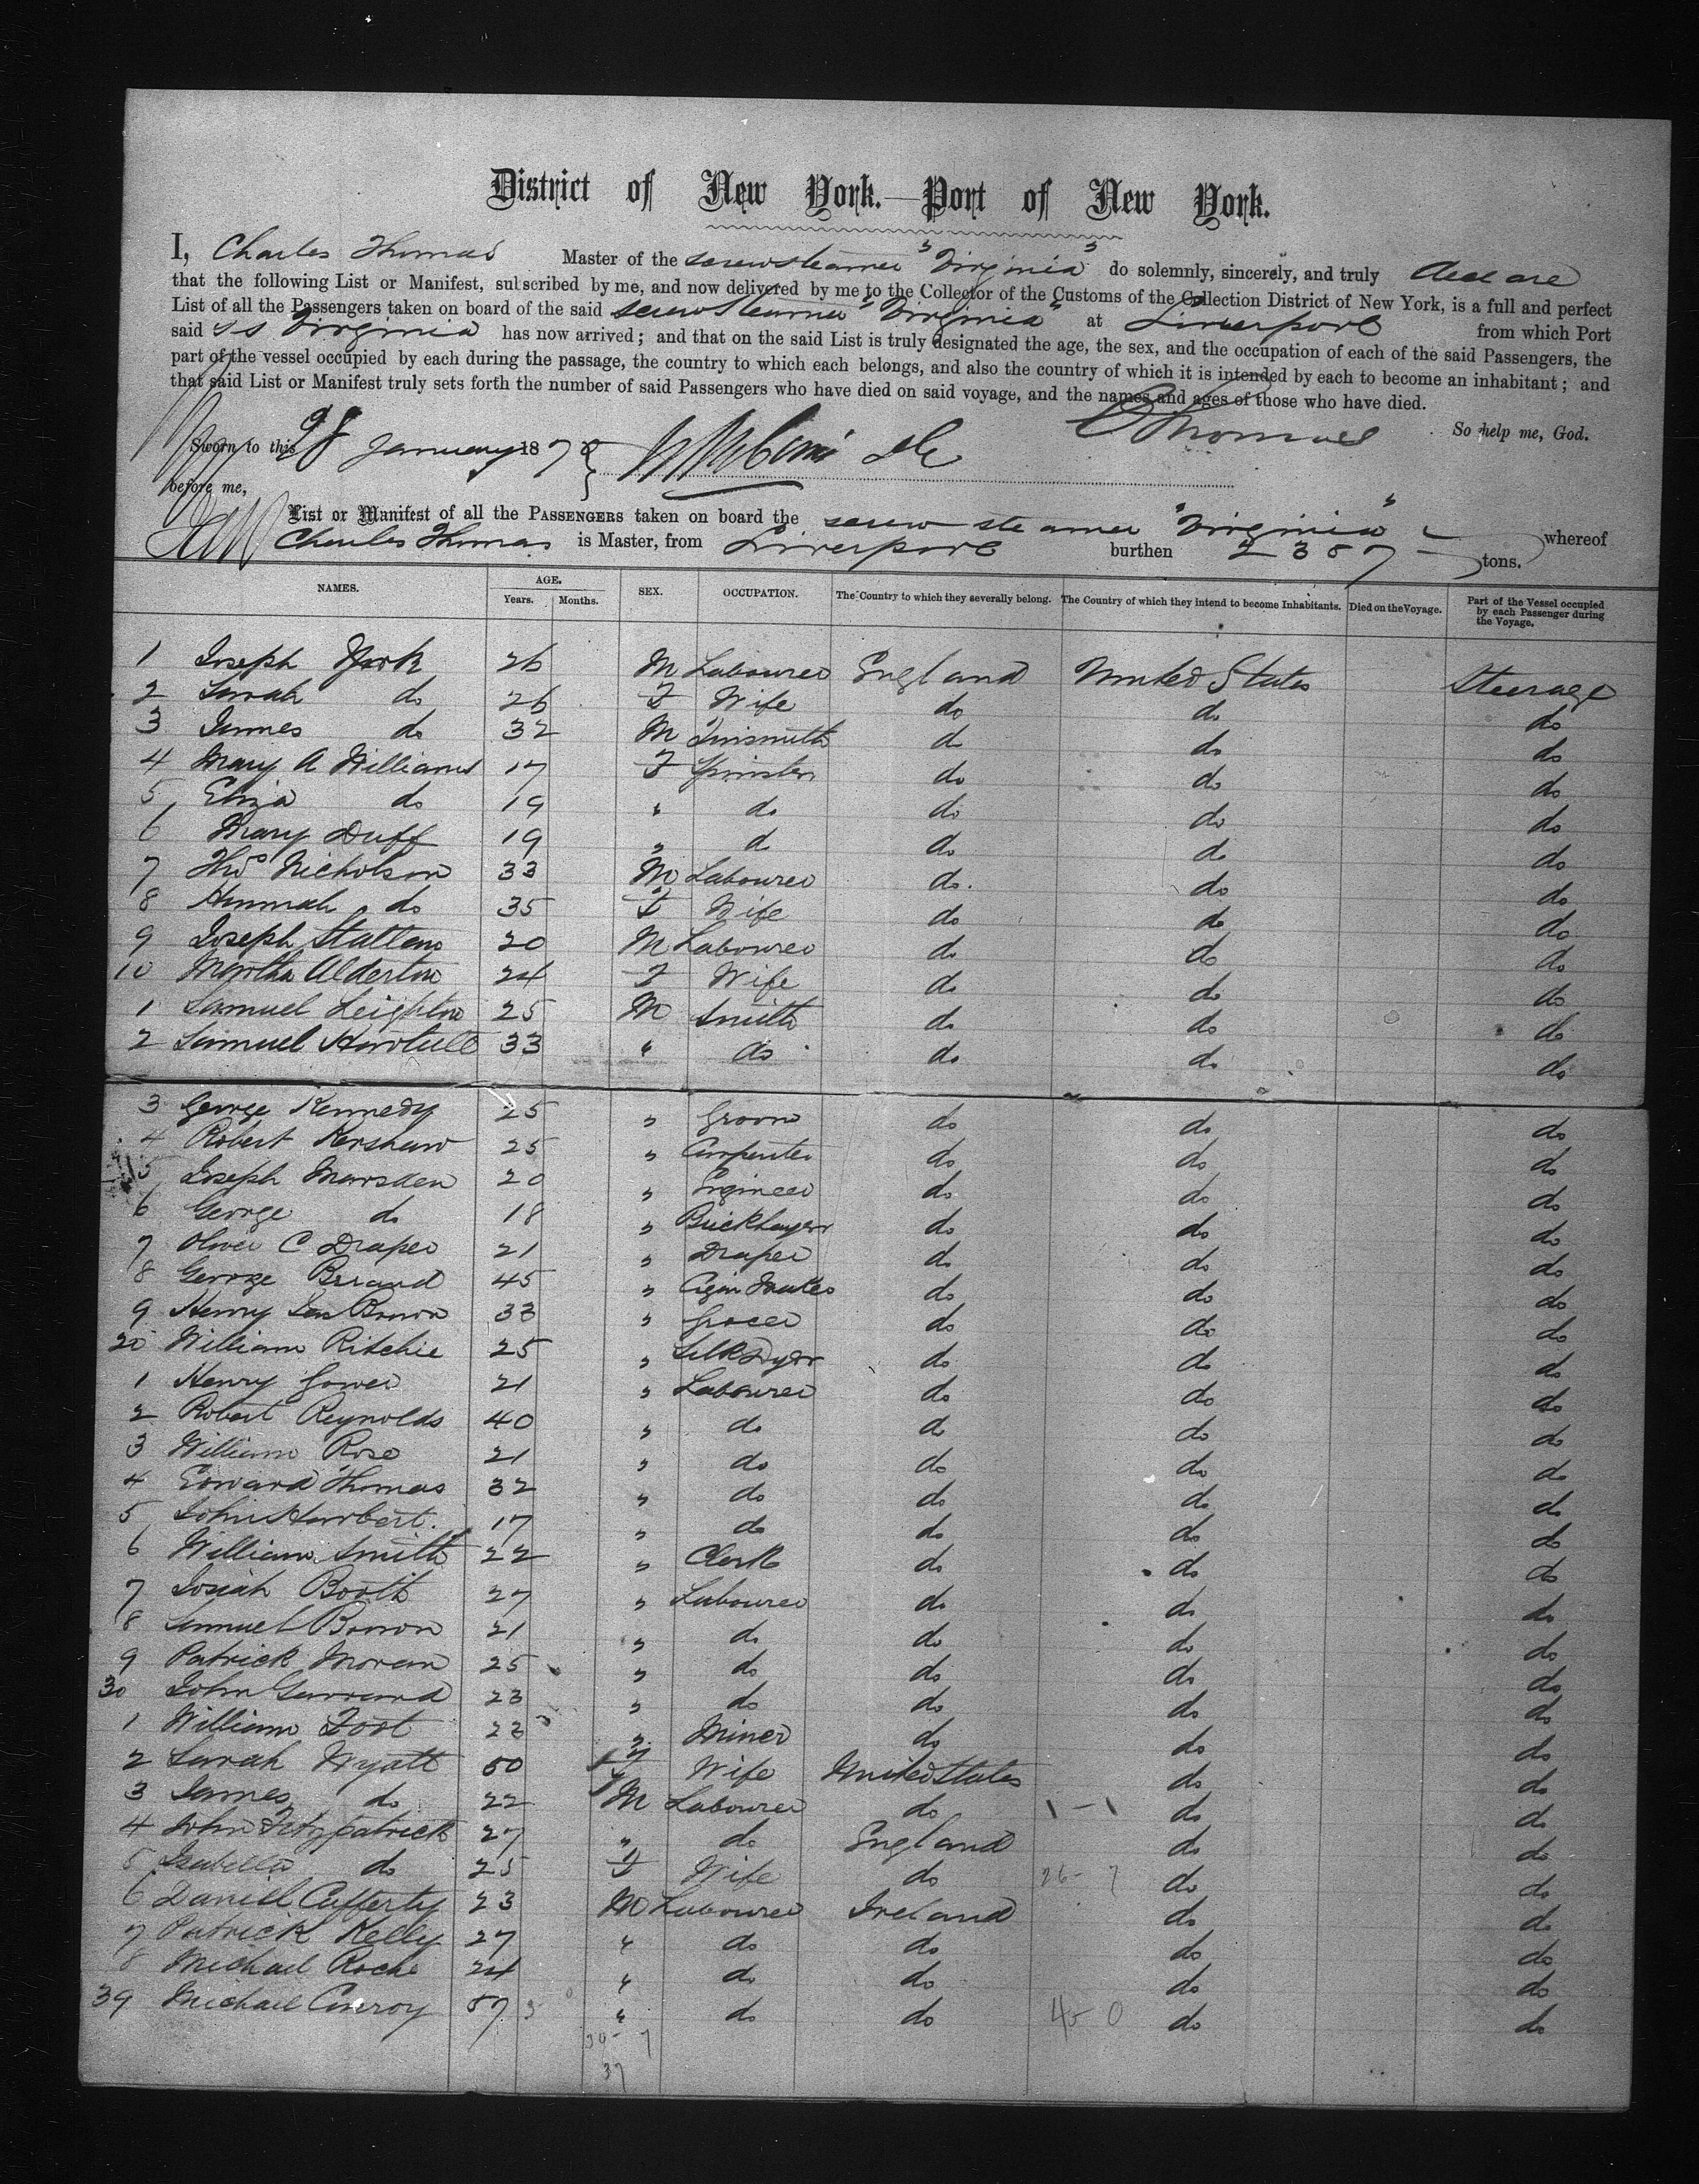 District of New York.—Port of New York.
I, Charles Thomas Master of the screw steamer "Virginia" do solemnly, sincerely, and truly declare
that the following List or Manifest, subscribed by me, and now delivered by me to the Collector of the Customs of the Collection District of New York, is a full and perfect
List of all the Passengers taken on board of the said screw steamer "Virginia" at Liverpool from which Port
said ss Virginia has now arrived; and that on the said List is truly designated the age, the sex, and the occupation of each of the said Passengers, the
part of the vessel occupied by each during the passage, the country to which each belongs, and also the country of which it is intended by each to become an inhabitant; and
that said List or Manifest truly sets forth the number of said Passengers who have died on said voyage, and the names and ages of those who have died.
So help me, God.
Sworn to this 28 January 187 C Thomas
before me,
List or Manifest of all the Passengers taken on board the screw steamer "Virginia" whereof
Charles Thomas is Master, from Liverpool burthen 2387 tons.
NAMES. AGE. Years. Months. SEX. OCCUPATION. The Country to which they severally belong. The Country of which they intend to become Inhabitants. Died on the Voyage. Part of the Vessel occupied by each Passenger during the Voyage.
1 Joseph York 26 M Labourer England United States Steerage
2 Sarah do 26 F Wife do do do
3 James do 32 M Tinsmith do do do
4 Mary A Williams 17 F Spinster do do do
5 Eliza do 19 " do do do do
6 Mary Duff 19 " do do do do
7 Thos Nicholson 33 M Labourer do. do do
8 Hannah do 35 F Wife do do do
9 Joseph 20 M Labourer do do do
10 Martha Alderton 24 F Wife do do do
1 Samuel Leighton 25 M Smith do do do
2 Samuel 33 " do do do do
3 George Kennedy 25 " Groom do do do
4 Robert Kershaw 25 " Carpenter do do do
5 Joseph Marsden 20 " Engineer do do do
6 George do 18 " Bricklayer do do do
7 Oliver C Draper 21 " Draper do do do
8 George 45 " Cigar Maker do do do
9 Henry Brown 33 " Grocer do do do
20 William Ritchie 25 " Silk Dyer do do do
1 Henry Gower 21 " Labourer do do do
2 Robert Reynolds 40 " do do do do
3 William Rose 21 " do do do do
4 Edward Thomas 32 " do do do do
5 John Harbert. 17 " do do do do
6 William Smith 22 " Clerk do do do
7 Josiah Booth 27 " Labourer do do do
8 Samuel Brown 21 " do do do do
9 Patrick Moran 25 " do do do do
30 John Garrard 23 " do do do do
1 William Foot 23 " Miner do do do
2 Sarah Wyatt 50 F Wife United States do do
3 James do 22 M Labourer do 1-1 do do
4 John Fitzpatrick 27 " do England do do
5 Isabella do 25 F Wife do 26-7 do do
6 Daniel Cafferty 23 M Labourer Ireland do do
7 Patrick Kelly 27 " do do do do
8 Michael Roche 24 " do do do do
39 Michael Conroy 57 " do do 45 0 do do
30-7
37